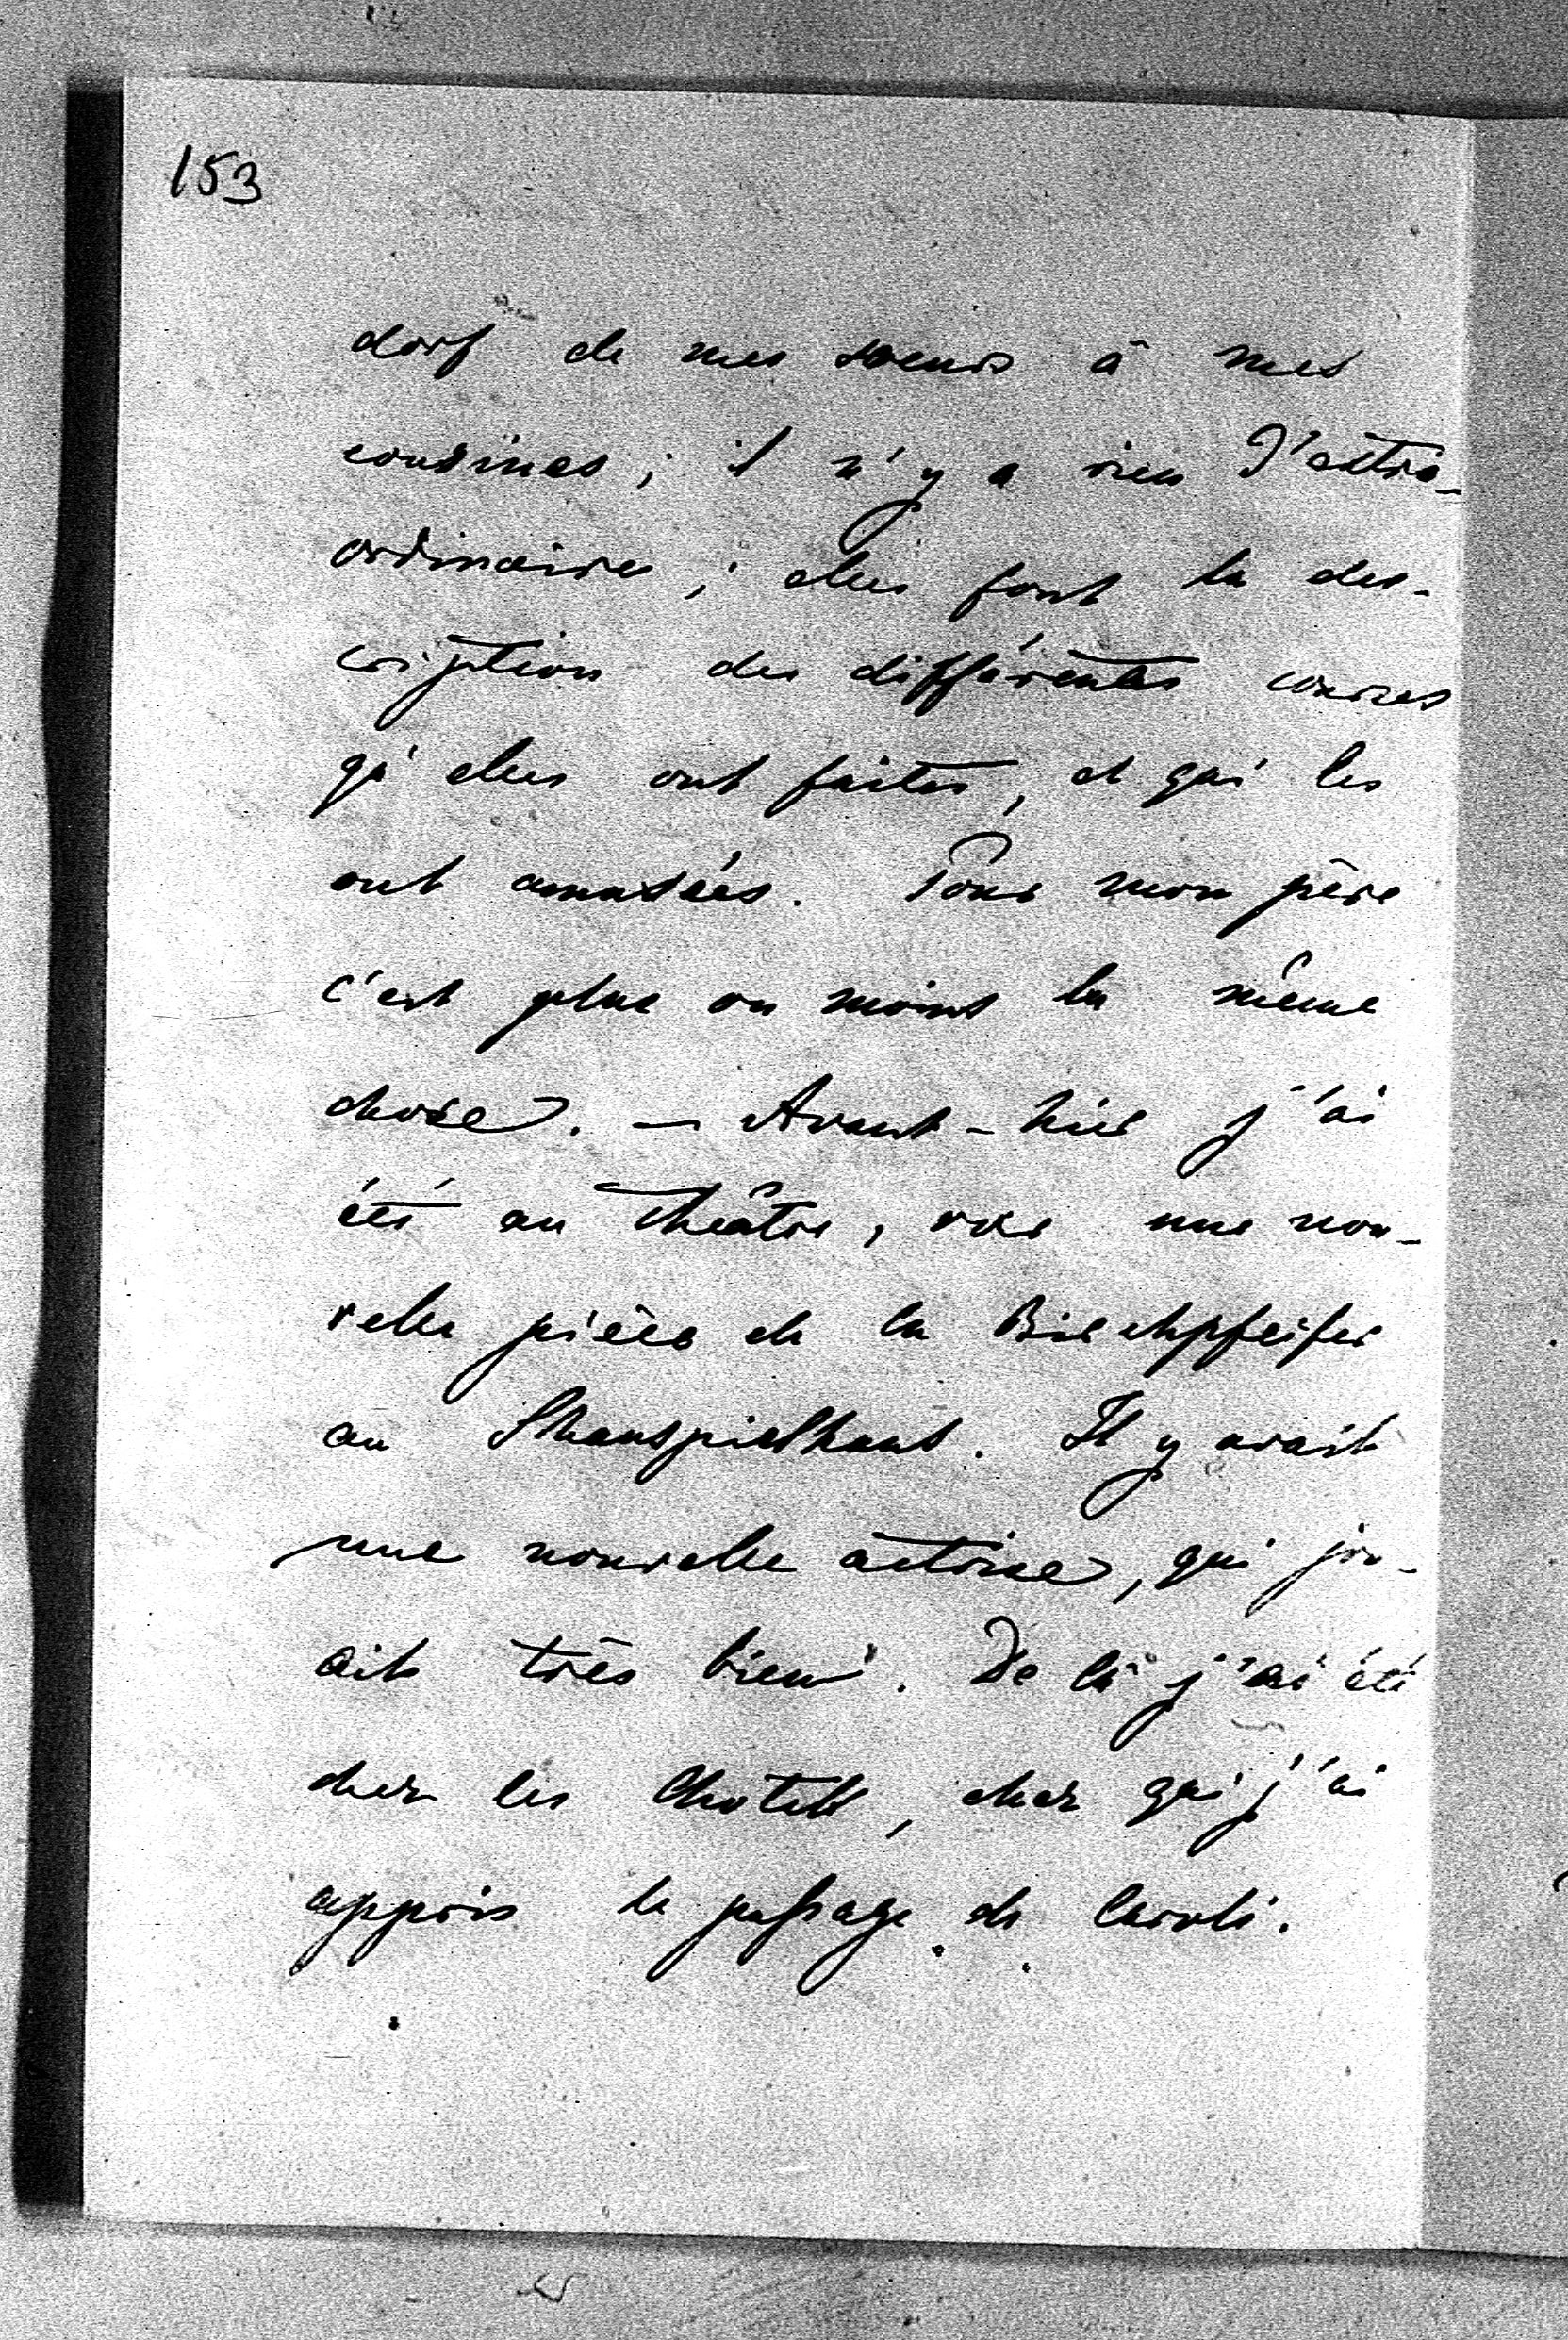 153
dorf de mes soeurs à mes
cousines ; il n'y a rien d'extra-
ordinaires ; elles font la des-
cription des différentes courses
qu'elles ont faites, et qui les
ont amusées. Pour mon père
c'est plus ou moins la même
chose. — Avant-hier j'ai
été au théâtre, voir une nou-
velle pièce de la Birchpfeifer
au Shauspielhaus. Il y avait
une nouvelle actrice, qui jou-
ait très bien. De là j'ai été
chez les Chotek, chez qui j'ai
appris le passage de Caroli.